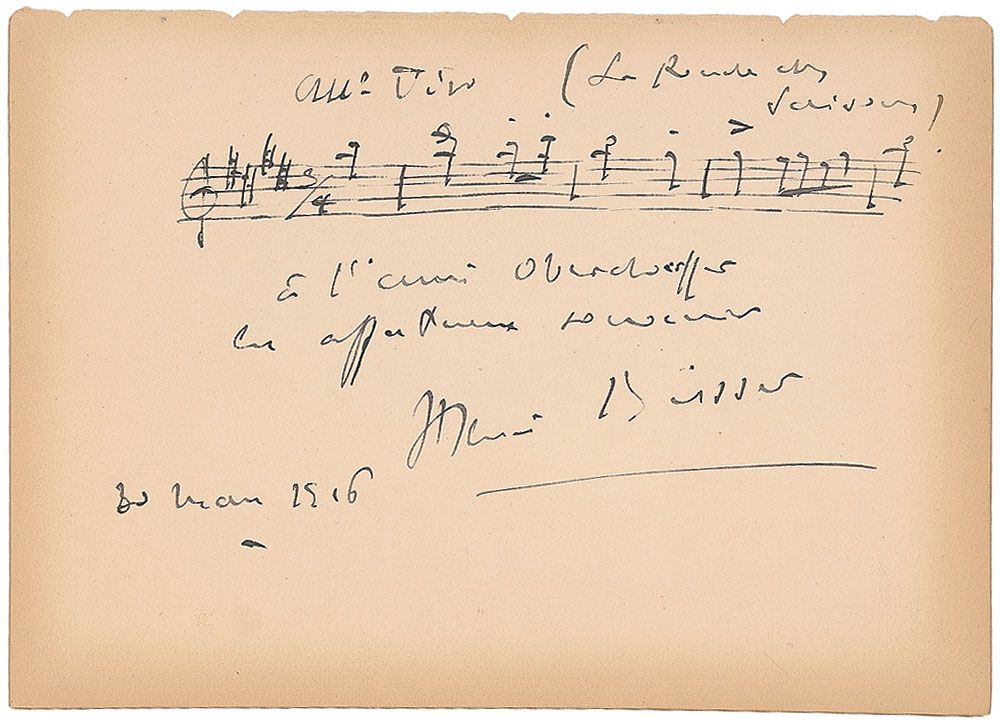 All° Vivo (La Ronde des
Saisons)
3/4
à l'ami Oberdoerffer
en affectueux souvenir
Henri Büsser
30 mars 1916